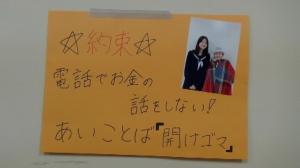 ☆約束☆
電話でお金の
話をしない!!
あいことば『開けゴマ』